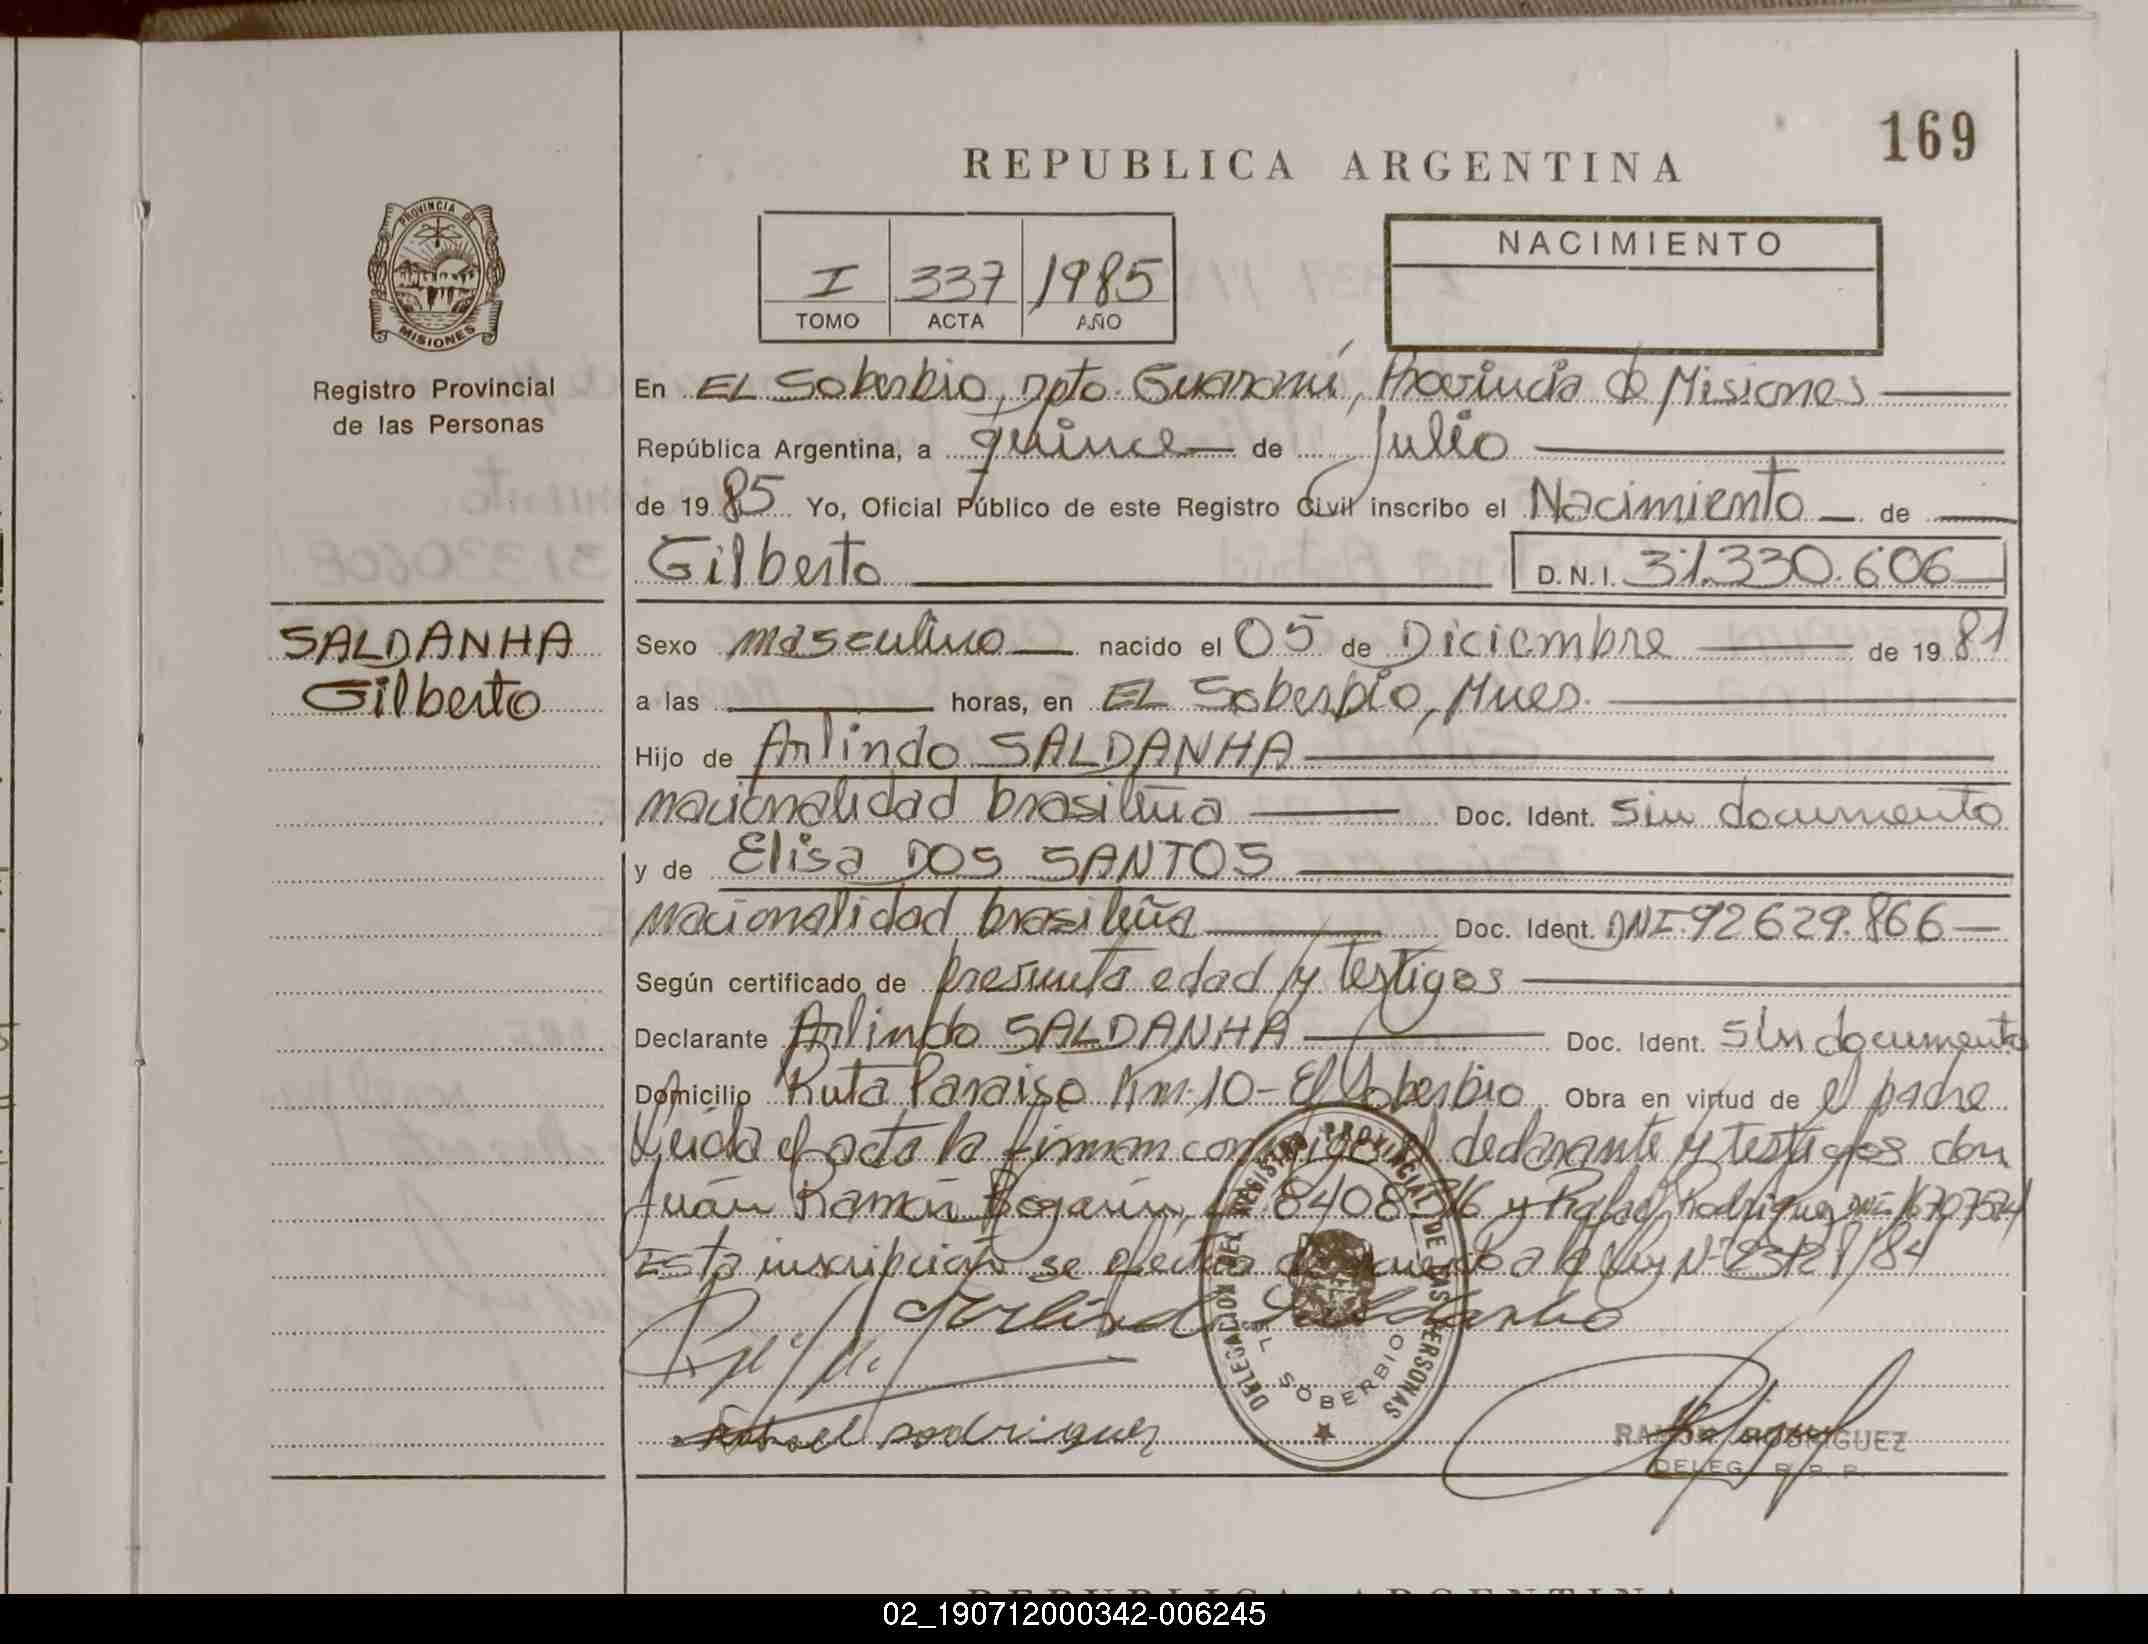 169
REPUBLICA ARGENTINA
PROVINCIA DE
MISIONES
Registro Provincial
de las Personas
I 337 1985
TOMO ACTA AÑO
NACIMIENTO
En EL Soberbio, Dpto. Guaraní, Provincia de Misiones
República Argentina, a quince de Julio
de 1985 Yo, Oficial Público de este Registro Civil inscribo el Nacimiento de
Gilberto D.N.I. 31.330.606
SALDANHA
Gilberto
Sexo masculino nacido el 05 de Diciembre de 1981
a las horas, en EL Soberbio, Mnes.
Hijo de Arlindo SALDANHA
nacionalidad brasileña Doc. Ident. Sin documento
y de Elisa DOS SANTOS
nacionalidad brasileña Doc. Ident. DNI 92629.866
Según certificado de presunta edad y testigos
Declarante Arlindo SALDANHA Doc. Ident. Sin documento
Domicilio Ruta Paraiso Km. 10 - El Soberbio Obra en virtud de el padre
Leida el acta la firman conmigo el declarante y testigos don
Juán Ramón Bogarín, y Rafael Rodriguez DNI
Esta inscripción se efectúa de acuerdo a la Ley Nº 23128/84
Arlindo Saldanha
Rafael rodriguez
DELEGACION DEL REGISTRO PROVINCIAL DE LAS PERSONAS
EL SOBERBIO
RAMON RODRIGUEZ
DELEG. R. P. P.
REPUBLICA ARGENTINA
02_190712000342-006245